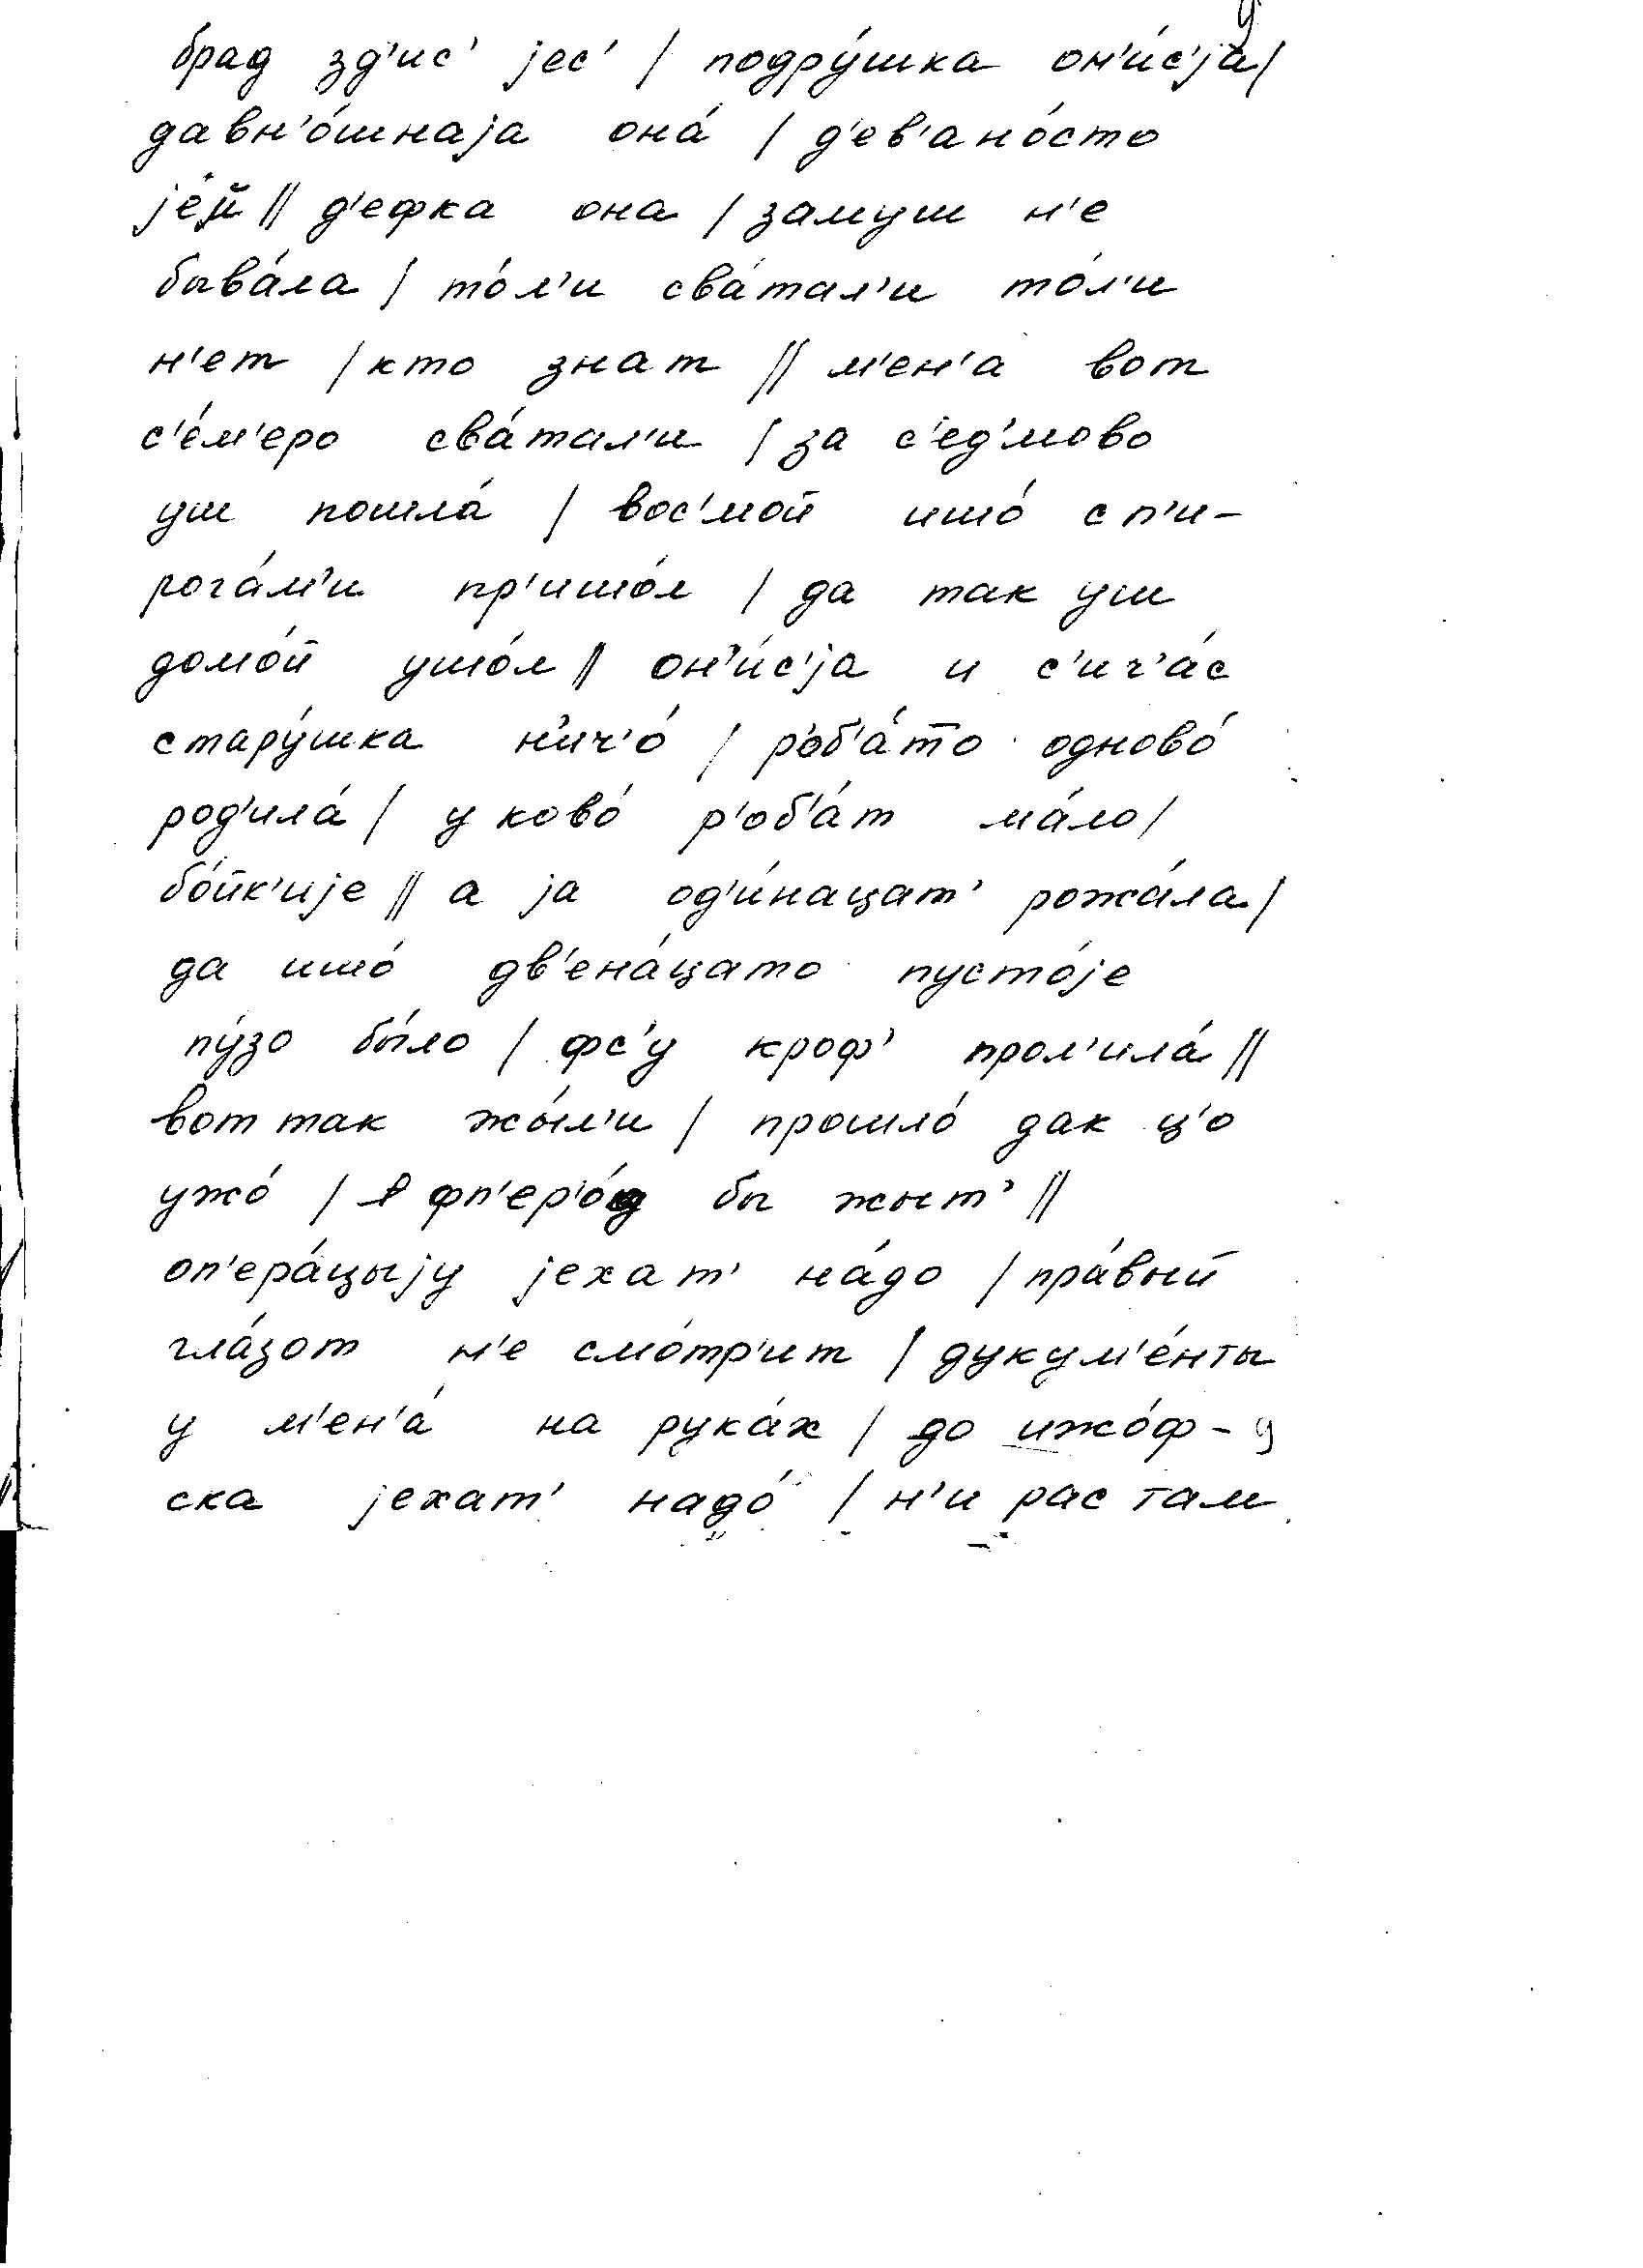 брад зд'ис' јес' / подру́шка он'и́с'ја /
давн'о́шнаја она́ / д'ев'ано́сто
је́й // д'ефка она / замуш н'е
быва́ла / то́л'и сва́тал'и то́л'и
н'ет / кто знат // м'ен'а вот
с'е́м'еро сва́тал'и / за с'ед'мово
уш пошла́ / вос'мой ишо́ с п'и-
рога́м'и пр'ишо́л / да так уш
домо́й ушо́л // он'и́с'ја и с'ич'а́с
стару́шка н'ич'о́ / р'об'а́то одново́
род'ила́ / у ково́ р'об'а́т ма́ло /
бо́йк'ије // а ја од'и́нацат' рожа́ла /
да ишо́ дв'ена́цато пусто́је
пу́зо бы́ло / фс'у кроф' прол'ила́ //
вот так жы́л'и / прошло́ дак ц'о
ужо́ / фп'ер'о́д бы жыт' //
оп'ера́цыју јехат' на́до / пра́вый
гла́зот н'е смо́тр'ит / дукум'е́нты
у м'ен'а́ на рука́х / до ижо́ф-
ска јехат' надо́ / н'и рас там